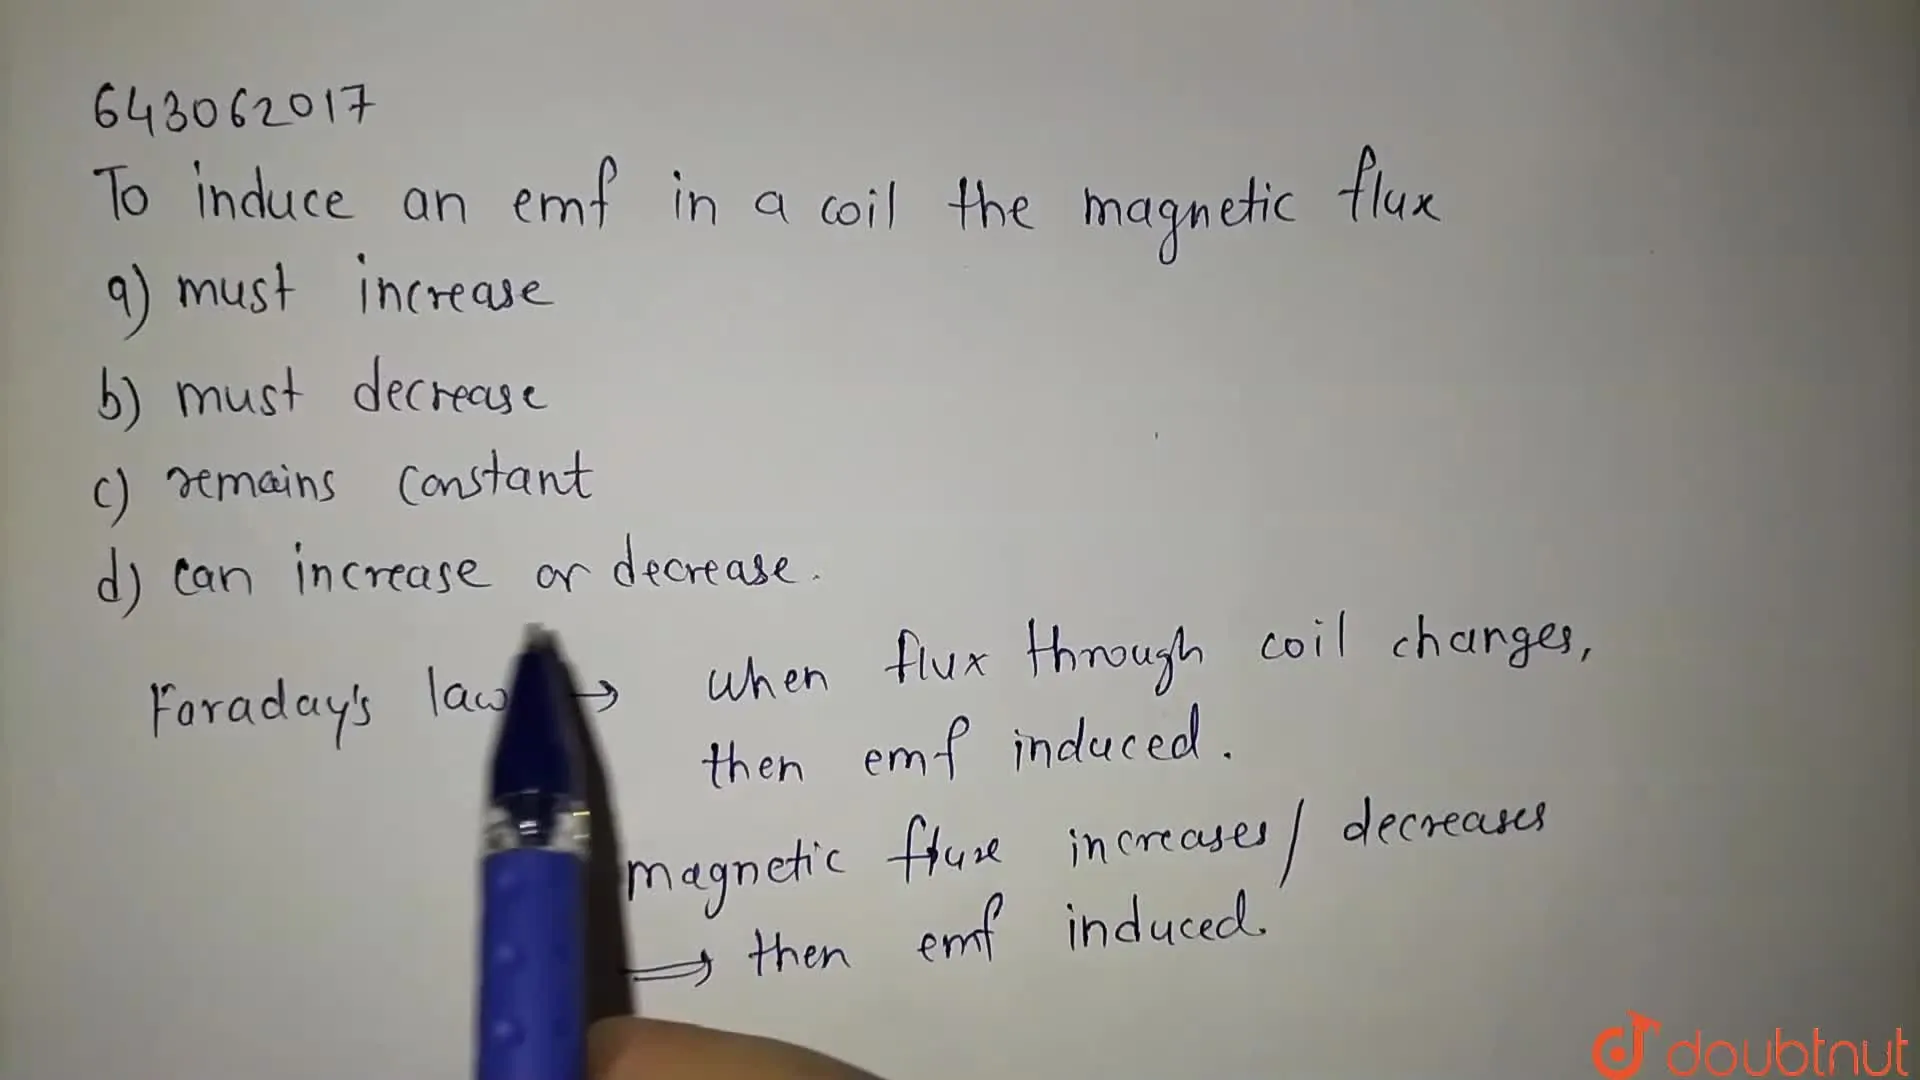 643062017
To induce an emf in a coil the magnetic flux
a) must increase
b) must decrease
c) remains constant
d) can increase or decrease.
Faraday's law → when flux through coil changes,
then emf induced.
magnetic flux increases/ decreases
⟹ then emf induced.
doubtnut